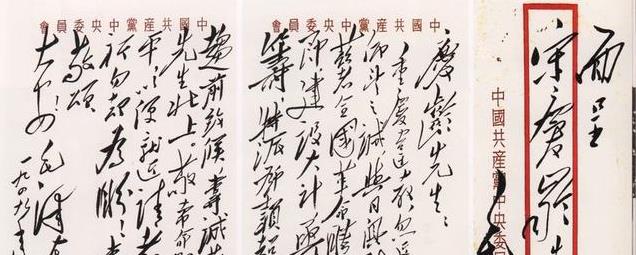 面呈
宋慶齡先
中國共產黨中央委員
中國共產黨中央委員會
慶齡先生:
重慶違教,忽近
仰望之誠,與日俱
茲者全國革命勝
建設大計,亟
商籌,特派鄧穎超
中國共產黨中央委員會
趨前致候,專誠
先生北上。敬希命
平,以便就近請教
祈勿却為盼!
敬頌
大安! 毛澤東
一九四九年